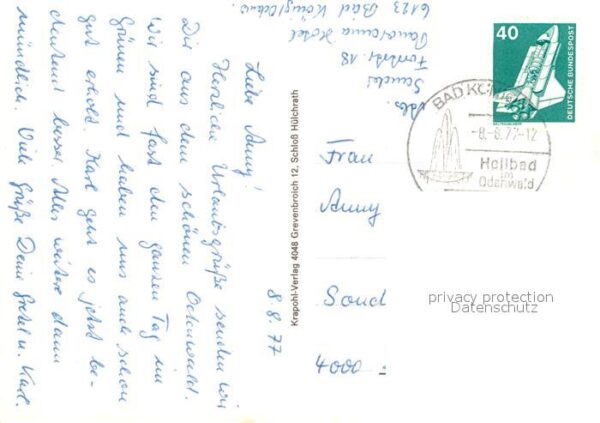 8.8.77
Liebe Anny!
Herzliche Urlaubsgrüße senden wir
Dir aus dem schönen Odenwald.
Wir sind fast den ganzen Tag im
Grünen und haben uns auch schon
gut erholt. Karl geht es jetzt be-
deutend besser. Alles weitere dann
mündlich. Viele Grüße Deine Gretel u. Karl.
Krapohl-Verlag 4048 Grevenbroich 12, Schloß Hülchrath
Abs.
18
Panorama Hotel
6123 Bad König/Odenw.
40
DEUTSCHE BUNDESPOST
BAD KÖNIG
-8.-8.77-12
Heilbad
im
Odenwald
Frau
Anny
4000
privacy protection
Datenschutz